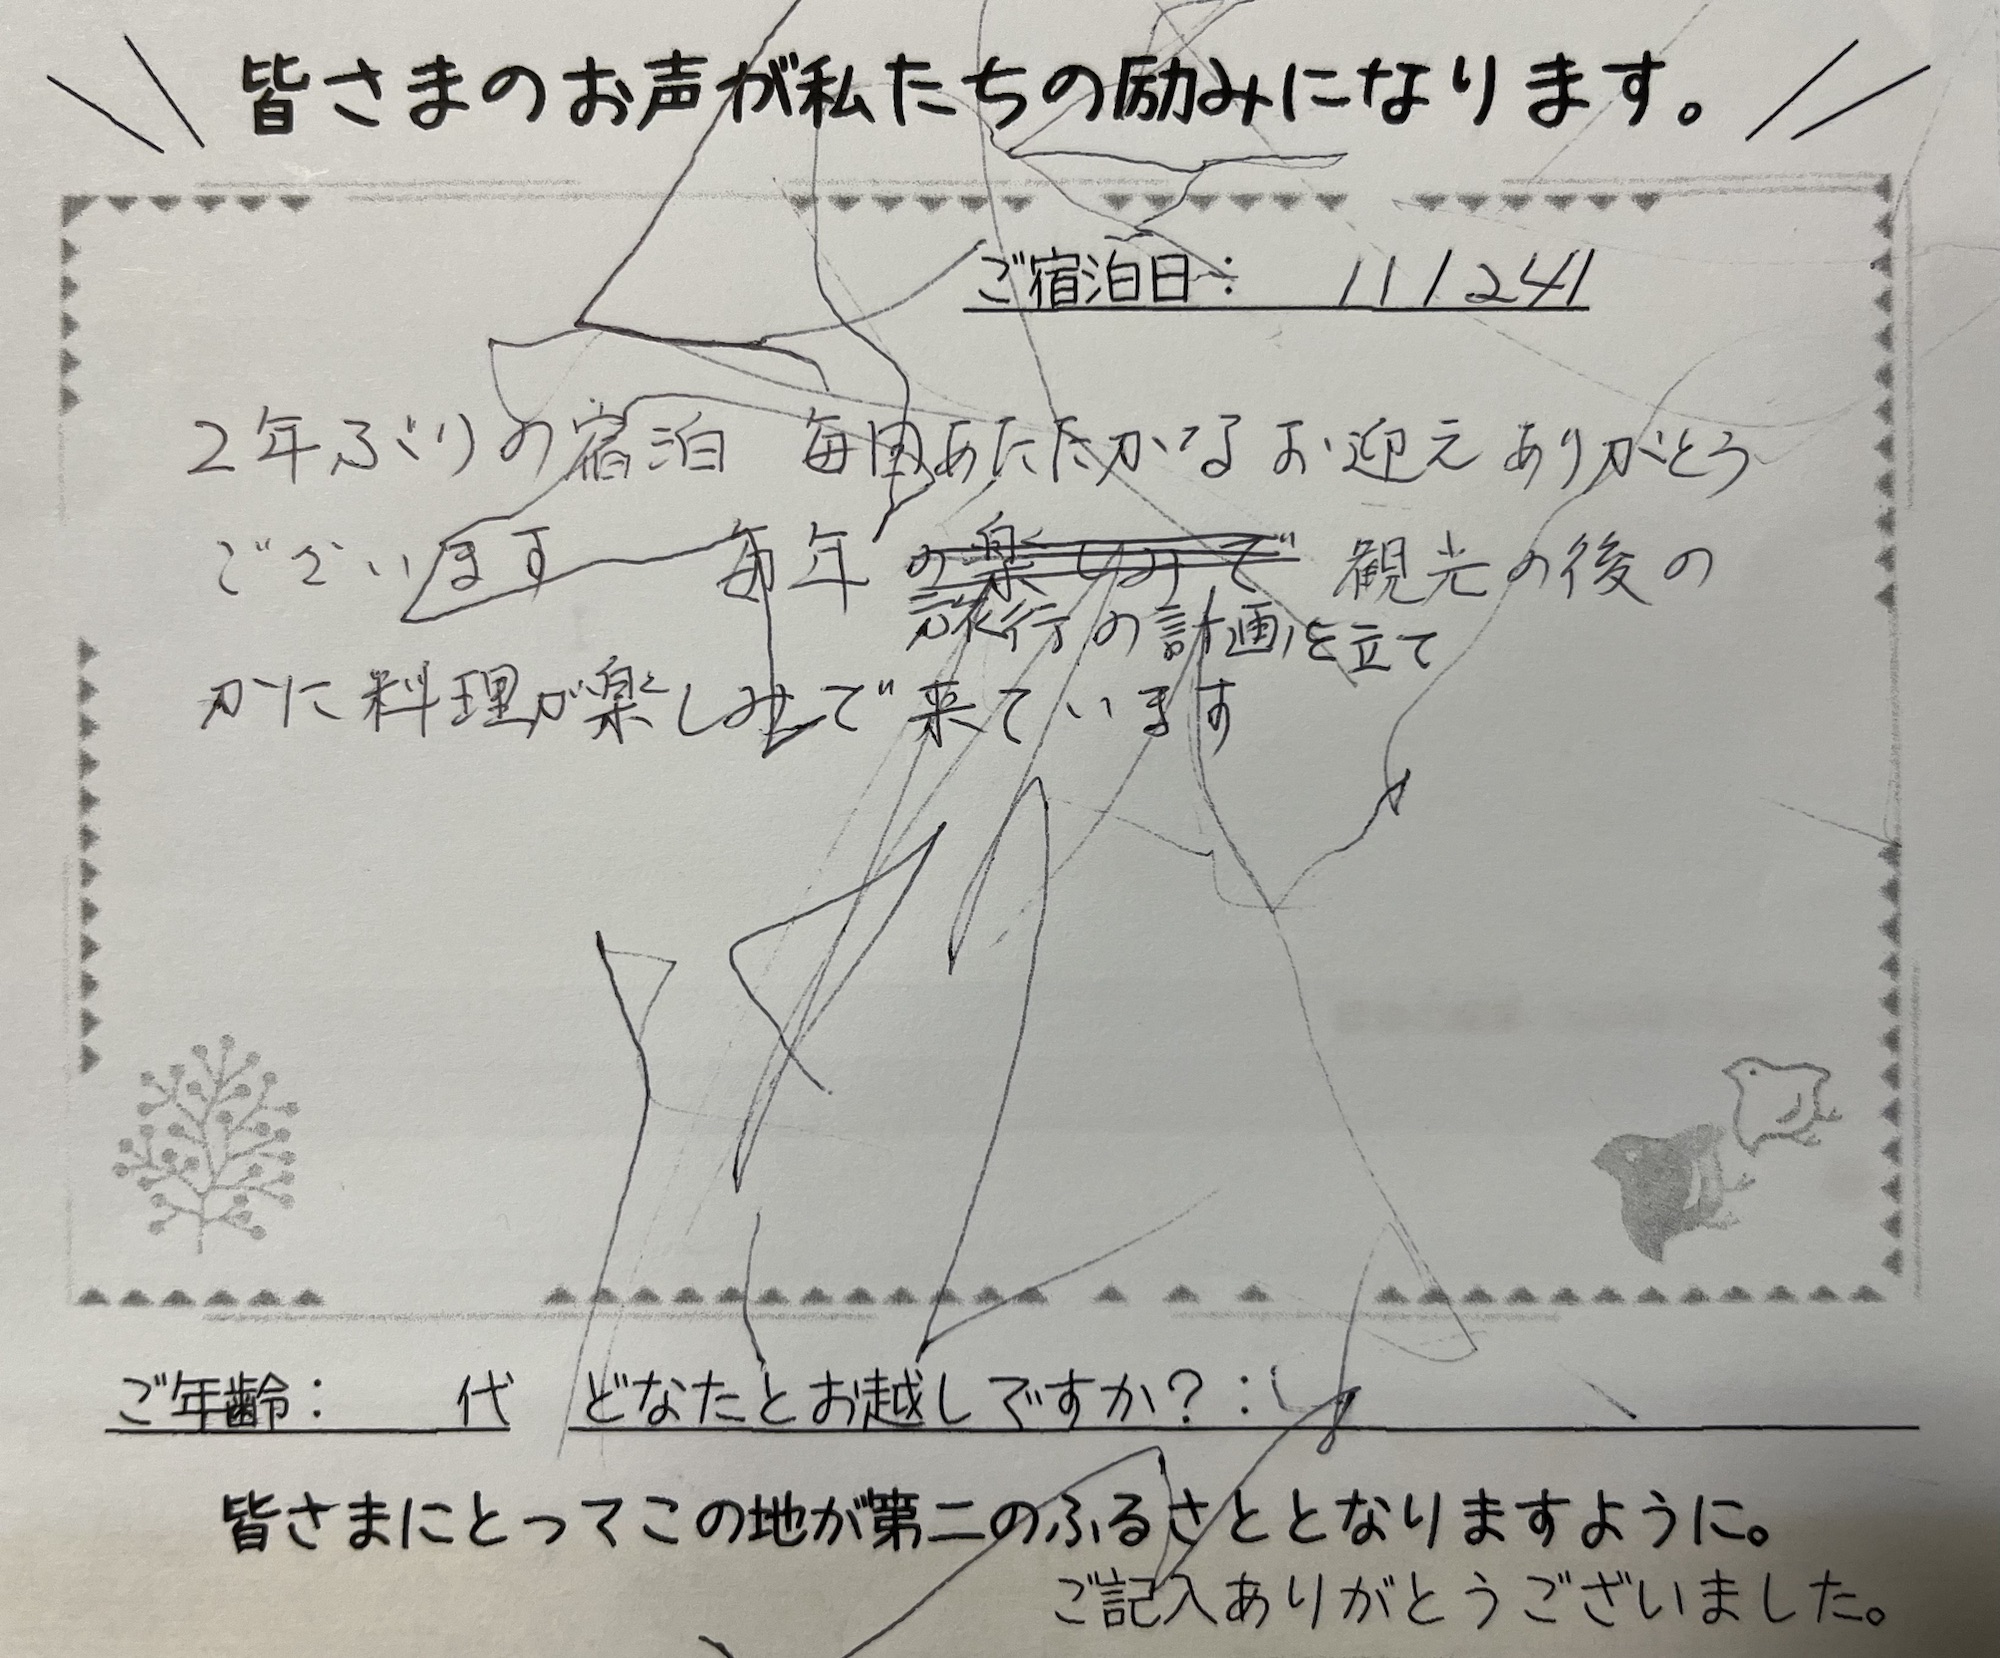 皆さまのお声が私たちの励みになります。
ご宿泊日： 11/24
2年ぶりの宿泊 毎回あたたかなるお迎えありがとう
ございます 毎年 の楽しみで 観光の後の
旅行の計画を立て
かに料理が楽しみで来ています
ご年齢： 代 どなたとお越しですか？：
皆さまにとってこの地が第二のふるさととなりますように。
ご記入ありがとうございました。